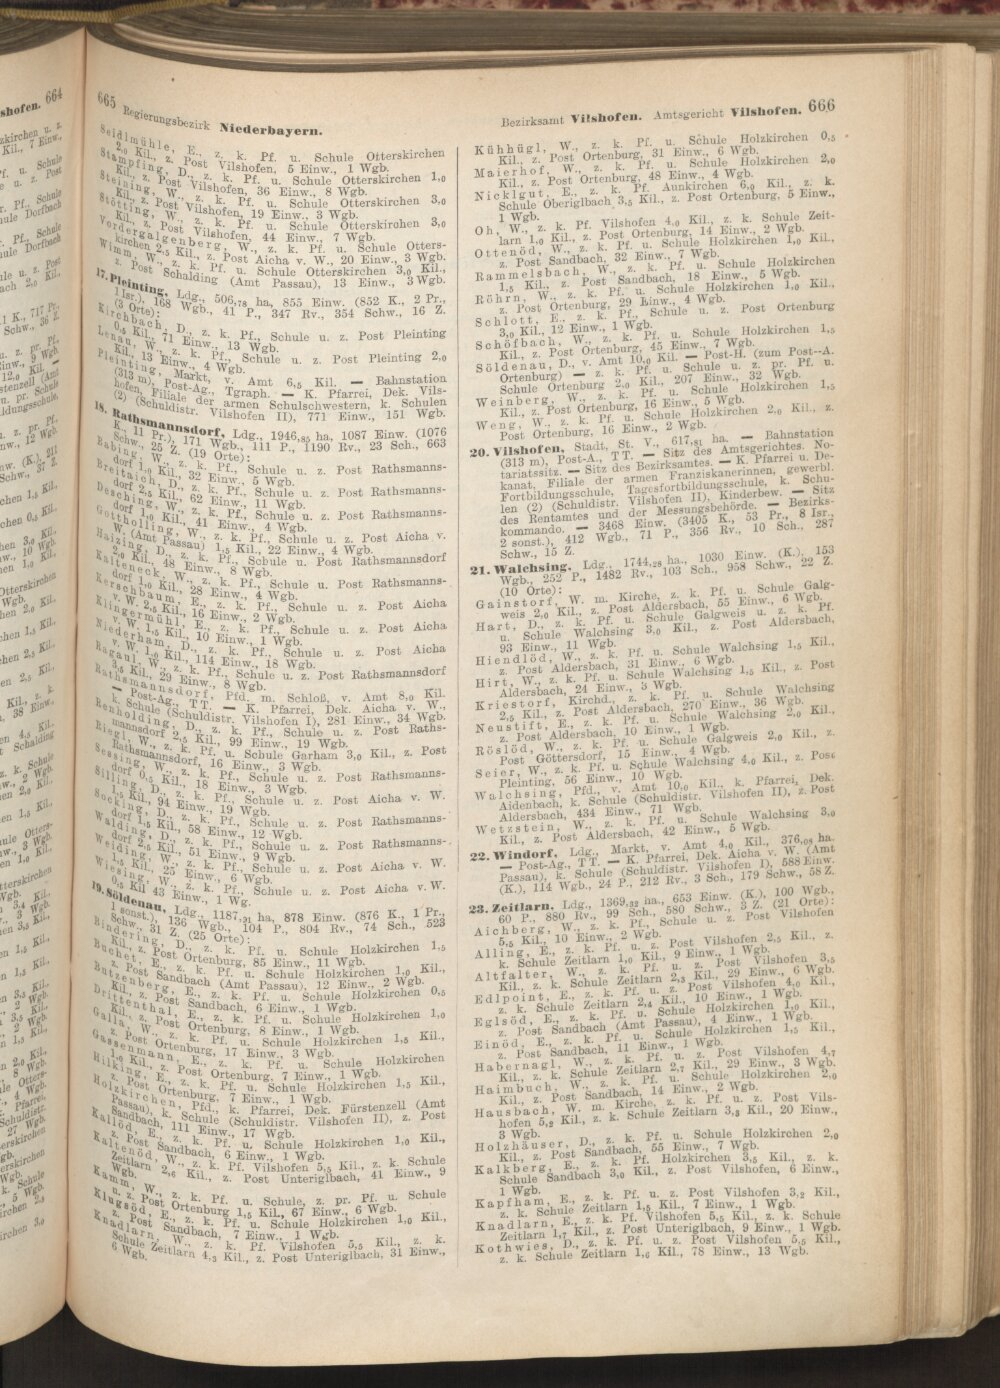 665 Regierungsbezirk Niederbayern.
Seidlmühle, E., z. k. Pf. u. Schule Otterskirchen
2,0 Kil., z. Post Vilshofen, 5 Einw., 1 Wgb.
Stampfing, D., z. k. Pf. u. Schule Otterskirchen 1,0
Kil., z. Post Vilshofen, 36 Einw., 8 Wgb.
Steining, W., z. k. Pf. u. Schule Otterskirchen 3,0
Kil., z. Post Vilshofen, 19 Einw., 3 Wgb.
Stötting, W., z. k. Pf. u. Schule Otterskirchen 3,0
Kil., z. Post Vilshofen, 44 Einw., 7 Wgb.
Vordergalgenberg, W., z. k. Pf. u. Schule Otters-
kirchen 2,5 Kil., z. Post Aicha v. W., 20 Einw., 3 Wgb.
Wimm, W., z. k. Pf. u. Schule Otterskirchen 3,0 Kil.,
z. Post Schalding (Amt Passau), 13 Einw., 3 Wgb.
17. Pleinting, Ldg., 506,78 ha, 855 Einw. (852 K., 2 Pr.,
1 Isr.), 168 Wgb., 41 P., 347 Rv., 354 Schw., 16 Z.
(3 Orte):
Kirchbach, D., z. k. Pf., Schule u. Post Pleinting
0,5 Kil., 71 Einw., 13 Wgb.
Lenau, W., z. k. Pf., Schule u. Post Pleinting 2,0
Kil., 13 Einw., 4 Wgb.
Pleinting, Markt, v. Amt 6,5 Kil. — Bahnstation
(313 m), Post-Ag., Tgraph. — K. Pfarrei, Dek. Vils-
hofen, Filiale der armen Schulschwestern, k. Schulen
(2) (Schuldistr. Vilshofen II), 771 Einw., 151 Wgb.
18. Rathsmannsdorf, Ldg., 1946,85 ha, 1087 Einw. (1076
K., 11 Pr.), 171 Wgb., 111 P., 1190 Rv., 23 Sch., 663
Schw., 25 Z. (19 Orte):
Babing, W., z. k. Pf., Schule u. z. Post Rathsmanns-
dorf 1,0 Kil., 32 Einw., 5 Wgb.
Breitaich, D., z. k. Pf., Schule u. z. Post Rathsmanns-
dorf 2,5 Kil., 62 Einw., 11 Wgb.
Desching, W., z. k. Pf., Schule u. z. Post Rathsmanns-
dorf 1,0 Kil., 41 Einw., 4 Wgb.
Gottholling, W., z. k. Pf., Schule u. z. Post Aicha v.
W. (Amt Passau) 1,5 Kil., 22 Einw., 4 Wgb.
Haizing, D., z. k. Pf., Schule u. z. Post Rathsmannsdorf
2,0 Kil., 48 Einw., 8 Wgb.
Kalteneck, W., z. k. Pf., Schule u. z. Post Rathsmanns-
dorf 1,0 Kil., 28 Einw., 4 Wgb.
Kerschbaum, E., z. k. Pf., Schule u. z. Post Aicha
v. W. 2,5 Kil., 16 Einw., 2 Wgb.
Klingermühl, E., z. k. Pf., Schule u. z. Post Aicha
v. W. 1,5 Kil., 10 Einw., 1 Wgb.
Niederham, D., z. k. Pf., Schule u. z. Post Aicha
v. W. 1,0 Kil., 114 Einw., 18 Wgb.
Ragaul, W., z. k. Pf., Schule u. z. Post Rathsmannsdorf
3,5 Kil., 29 Einw., 8 Wgb.
Rathsmannsdorf, Pfd. m. Schloß, v. Amt 8,0 Kil.
— Post-Ag., TT. — K. Pfarrei, Dek. Aicha v. W.,
k. Schule (Schuldistr. Vilshofen I), 281 Einw., 34 Wgb.
Renholding, D., z. k. Pf., Schule u. z. Post Raths-
mannsdorf 2,5 Kil., 99 Einw., 19 Wgb.
Riegl, W., z. k. Pf. u. Schule Garham 3,0 Kil., z. Post
Rathsmannsdorf, 16 Einw., 3 Wgb.
Sessing, W., z. k. Pf., Schule u. z. Post Rathsmanns-
dorf 0,5 Kil., 18 Einw., 3 Wgb.
Silling, D., z. k. Pf., Schule u. z. Post Aicha v. W.
1,5 Kil., 94 Einw., 19 Wgb.
Socking, D., z. k. Pf., Schule u. z. Post Rathsmanns-
dorf 1,5 Kil., 58 Einw., 12 Wgb.
Walding, D., z. k. Pf., Schule u. z. Post Rathsmanns-
dorf 2,5 Kil., 51 Einw., 9 Wgb.
Weiding, W., z. k. Pf., Schule u. z. Post Aicha v. W.
1,5 Kil., 25 Einw., 6 Wgb.
Wiesing, W., z. k. Pf., Schule u. z. Post Aicha v. W.
0,5 Kil 43 Einw., 1 Wg.
19. Söldenau, Ldg., 1187,91 ha, 878 Einw. (876 K., 1 Pr.,
1 sonst.), 136 Wgb., 104 P., 804 Rv., 74 Sch., 523
Schw., 31 Z. (25 Orte):
Bindering, D., z. k. Pf. u. Schule Holzkirchen 1,5
Kil., z. Post Ortenburg, 85 Einw., 11 Wgb.
Buchet, E., z. k. Pf. u. Schule Holzkirchen 1,0 Kil.,
z. Post Sandbach (Amt Passau), 12 Einw., 2 Wgb.
Butzenberg, E., z. k. Pf. u. Schule Holzkirchen 0,5
Kil., z. Post Sandbach, 6 Einw., 1 Wgb.
Drittenthal, E., z. k. Pf. u. Schule Holzkirchen 1,0
Kil., z. Post Ortenburg, 8 Einw., 1 Wgb.
Galla, W., z. k. Pf. u. Schule Holzkirchen 1,5 Kil.,
z. Post Ortenburg, 17 Einw., 3 Wgb.
Gassenmann, E., z. k. Pf. u. Schule Holzkirchen
1,0 Kil., z. Post Ortenburg, 7 Einw., 1 Wgb.
Hilking, E., z. k. Pf. u. Schule Holzkirchen 1,5 Kil.,
z. Post Ortenburg, 7 Einw., 1 Wgb.
Holzkirchen, Pfd., k. Pfarrei, Dek. Fürstenzell (Amt
Passau), k. Schule (Schuldistr. Vilshofen II), z. Post
Sandbach, 111 Einw., 17 Wgb.
Kallöd, E., z. k. Pf. u. Schule Holzkirchen 1,0 Kil.,
z. Post Sandbach, 6 Einw., 1 Wgb.
Kaltenöd, W., z. k. Pf. Vilshofen 5,5 Kil., z. k. Schule
Zeitlarn 2,6 Kil., z. Post Unteriglbach, 41 Einw., 9
Wgb.
Kamm, W., z. k. Pf. u. Schule, z. pr. Pf. u. Schule
u. z. Post Ortenburg 1,5 Kil., 67 Einw., 6 Wgb.
Klugsöd, E., z. k. Pf. u. Schule Holzkirchen 1,0 Kil.,
z. Post Sandbach, 7 Einw., 1 Wgb.
Knadlarn, W., z. k. Pf. Vilshofen 5,5 Kil., z. k.
Schule Zeitlarn 4,3 Kil., z. Post Unteriglbach, 31 Einw.,
6 Wgb.
Bezirksamt Vilshofen. Amtsgericht Vilshofen. 666
Kühhügl, W., z. k. Pf. u. Schule Holzkirchen 0,5
Kil., z. Post Ortenburg, 31 Einw., 6 Wgb.
Maierhof, W., z. k. Pf. u. Schule Holzkirchen 2,0
Kil., z. Post Ortenburg, 48 Einw., 4 Wgb.
Nicklgut, E., z. k. Pf. Aunkirchen 6,0 Kil., z. k.
Schule Oberiglbach 3,5 Kil., z. Post Ortenburg, 5 Einw.,
1 Wgb.
Oh, W., z. k. Pf. Vilshofen 4,0 Kil., z. k. Schule Zeit-
larn 1,0 Kil., z. Post Ortenburg, 14 Einw., 2 Wgb.
Ottenöd, W., z. k. Pf. u. Schule Holzkirchen 1,0 Kil.,
z. Post Sandbach, 32 Einw., 7 Wgb.
Rammelsbach, W., z. k. Pf. u. Schule Holzkirchen
1,5 Kil., z. Post Sandbach, 18 Einw., 5 Wgb.
Röhrn, W., z. k. Pf. u. Schule Holzkirchen 1,0 Kil.,
z. Post Ortenburg, 29 Einw., 4 Wgb.
Schlott, E., z. k. Pf., Schule u. z. Post Ortenburg
3,0 Kil., 12 Einw., 1 Wgb.
Schöfbach, W., z. k. Pf. u. Schule Holzkirchen 1,5
Kil., z. Post Ortenburg, 45 Einw., 7 Wgb.
Söldenau, D., v. Amt 10,0 Kil. — Post-H. (zum Post-A.
Ortenburg) — z. k. Pf. u. Schule u. z. pr. Pf. u.
Schule Ortenburg 2,0 Kil., 207 Einw., 32 Wgb.
Weinberg, W., z. k. Pf. u. Schule Holzkirchen 1,5
Kil., z. Post Ortenburg, 16 Einw., 5 Wgb.
Weng, W., z. k. Pf. u. Schule Holzkirchen 2,0 Kil., z.
Post Ortenburg, 16 Einw., 2 Wgb.
20. Vilshofen, Stadt, St. V., 617,81 ha. — Bahnstation
(313 m), Post-A., TT. — Sitz des Amtsgerichtes. No-
tariatssitz. — Sitz des Bezirksamtes. — K. Pfarrei u. De-
kanat, Filiale der armen Franziskanerinnen, gewerbl.
Fortbildungsschule, Tagesfortbildungsschule, k. Schu-
len (2) (Schuldistr. Vilshofen II), Kinderbew. — Sitz
des Rentamtes und der Messungsbehörde. — Bezirks-
kommando. — 3468 Einw. (3405 K., 53 Pr., 8 Isr.,
2 sonst.), 412 Wgb., 71 P., 356 Rv., 10 Sch., 287
Schw., 15 Z.
21. Walchsing, Ldg., 1744,28 ha., 1030 Einw. (K.), 153
Wgb., 252 P., 1482 Rv., 103 Sch., 958 Schw., 22 Z.
(10 Orte):
Gainstorf, W. m. Kirche, z. k. Pf. u. Schule Galg-
weis 2,0 Kil., z. Post Aldersbach, 55 Einw., 6 Wgb.
Hart, D., z. k. Pf. u. Schule Galgweis u. z. k. Pf.
u. Schule Walchsing 3,0 Kil., z. Post Aldersbach,
93 Einw., 11 Wgb.
Hiendlöd, W., z. k. Pf. u. Schule Walchsing 1,5 Kil.,
z. Post Aldersbach, 31 Einw., 6 Wgb.
Hirt, W., z. k. Pf. u. Schule Walchsing 1,5 Kil., z. Post
Aldersbach, 24 Einw., 3 Wgb.
Kriestorf, Kirchd., z. k. Pf. u. Schule Walchsing
2,5 Kil., z. Post Aldersbach, 270 Einw., 36 Wgb.
Neustift, E., z. k. Pf. u. Schule Walchsing 2,0 Kil.,
z. Post Aldersbach, 10 Einw., 1 Wgb.
Röslöd, W., z. k. Pf. u. Schule Galgweis 2,0 Kil., z.
Post Göttersdorf, 15 Einw., 4 Wgb.
Seier, W., z. k. Pf. u. Schule Walchsing 4,0 Kil., z. Post
Pleinting, 56 Einw., 10 Wgb.
Walchsing, Pfd., v. Amt 10,0 Kil., k. Pfarrei, Dek.
Aidenbach, k. Schule (Schuldistr. Vilshofen II), z. Post
Aldersbach, 434 Einw., 71 Wgb.
Wetzstein, W., z. k. Pf. u. Schule Walchsing 3,0
Kil., z. Post Aldersbach, 42 Einw., 5 Wgb.
22. Windorf, Ldg., Markt, v. Amt 4,0 Kil., 376,08 ha.
— Post-Ag., TT. — K. Pfarrei, Dek. Aicha v. W. (Amt
Passau), k. Schule (Schuldistr. Vilshofen I), 588 Einw.
(K.), 114 Wgb., 24 P., 212 Rv., 3 Sch., 179 Schw., 58 Z.
23. Zeitlarn, Ldg., 1369,32 ha., 653 Einw. (K.), 100 Wgb.,
60 P., 880 Rv., 99 Sch., 580 Schw., 3 Z. (21 Orte):
Aichberg, W., z. k. Pf., Schule u. z. Post Vilshofen
5,5 Kil., 10 Einw., 2 Wgb.
Alling, E., z. k. Pf. u. z. Post Vilshofen 2,5 Kil., z.
k. Schule Zeitlarn 1,0 Kil., 9 Einw., 1 Wgb.
Altfalter, W., z. k. Pf. u. z. Post Vilshofen 3,5
Kil., z. k. Schule Zeitlarn 2,3 Kil., 29 Einw., 6 Wgb.
Edlpoint, E., z. k. Pf. u. z. Post Vilshofen 4,0 Kil.,
z. k. Schule Zeitlarn 2,4 Kil., 10 Einw., 1 Wgb.
Eglsöd, E., z. k. Pf. u. Schule Holzkirchen 1,0 Kil.,
z. Post Sandbach (Amt Passau), 4 Einw., 1 Wgb.
Einöd, E., z. k. Pf. u. Schule Holzkirchen 1,5 Kil.,
z. Post Sandbach, 11 Einw., 1 Wgb.
Habernagl, W., z. k. Pf. u. z. Post Vilshofen 4,7
Kil., z. k. Schule Zeitlarn 2,7 Kil., 29 Einw., 3 Wgb.
Haimbuch, W., z. k. Pf. u. Schule Holzkirchen 2,0
Kil., z. Post Sandbach, 14 Einw., 2 Wgb.
Hausbach, W. m. Kirche, z. k. Pf. u. z. Post Vils-
hofen 5,2 Kil., z. k. Schule Zeitlarn 3,3 Kil., 20 Einw.,
3 Wgb.
Holzhäuser, D., z. k. Pf. u. Schule Holzkirchen 2,0
Kil., z. Post Sandbach, 55 Einw., 7 Wgb.
Kalkberg, E., z. k. Pf. Holzkirchen 3,5 Kil., z. k.
Schule Sandbach 3,0 Kil., z. Post Vilshofen, 6 Einw.,
1 Wgb.
Kapfham, E., z. k. Pf. u. z. Post Vilshofen 3,2 Kil.,
z. k. Schule Zeitlarn 1,5 Kil., 7 Einw., 1 Wgb.
Knadlarn, E., z. k. Pf. Vilshofen 5,5 Kil., z. k. Schule
Zeitlarn 1,7 Kil., z. Post Unteriglbach, 9 Einw., 1 Wgb.
Kothwies, D., z. k. Pf. u. z. Post Vilshofen 5,5 Kil.,
z. k. Schule Zeitlarn 1,6 Kil., 78 Einw., 13 Wgb.